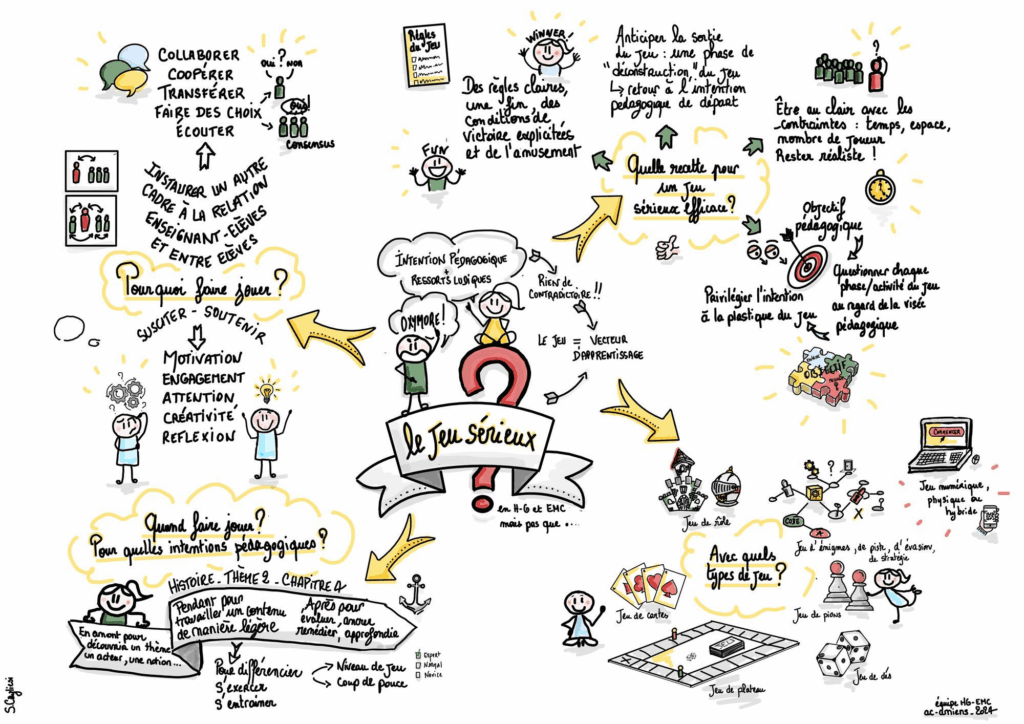 le Jeu Sérieux
en H-G et EMC
mais pas que ...
OXYMORE !
INTENTION PÉDAGOGIQUE
+
RESSORTS LUDIQUES
RIEN DE
CONTRADICTOIRE !!
LE JEU = VECTEUR
D'APPRENTISSAGE
COLLABORER
COOPÉRER
TRANSFÉRER
FAIRE DES CHOIX
ÉCOUTER
OUI ? NON
OUI !
CONSENSUS
INSTAURER UN AUTRE
CADRE À LA RELATION
ENSEIGNANT-ÉLÈVES
ET ENTRE ÉLÈVES
Pourquoi faire jouer ?
SUSCITER - SOUTENIR
MOTIVATION
ENGAGEMENT
ATTENTION
CRÉATIVITÉ
REFLEXION
?
Règles
du Jeu
WINNER !
Des règles claires,
une fin, des
conditions de
victoire explicitées
et de l'amusement
FUN
Anticiper la sortie
du jeu : une phase de
"déconstruction" du jeu
↳ retour à l'intention
pédagogique de départ
?
Être au clair avec les
contraintes : temps, espace,
nombre de joueur
Rester réaliste !
Quelle recette pour
un jeu
sérieux efficace ?
Objectif
pédagogique
Questionner chaque
phase/activité du jeu
au regard de la visée
pédagogique
Privilégier l'intention
à la plastique du jeu
OBJECTIF
Quand faire jouer ?
Pour quelles intentions pédagogiques ?
HISTOIRE - THÈME 2 - CHAPITRE 4
En amont pour
découvrir un thème
un acteur, une notion ...
Pendant pour
travailler un contenu
de manière légère
Après pour
évaluer, ancrer
remédier, approfondir
Pour différencier
S'exercer
S'entraîner
Niveau de jeu
Coup de pouce
Expert
Normal
Novice
Avec quels
types de jeu ?
Jeu de rôle
?
CODE
X
Jeu d'énigmes, de piste, d'évasion,
de stratégie
COMMENCER
Jeu numérique,
physique ou
hybride
Jeu de cartes
Jeu de pions
Jeu de plateau
Jeu de dés
équipe HG-EMC
ac-amiens_2024